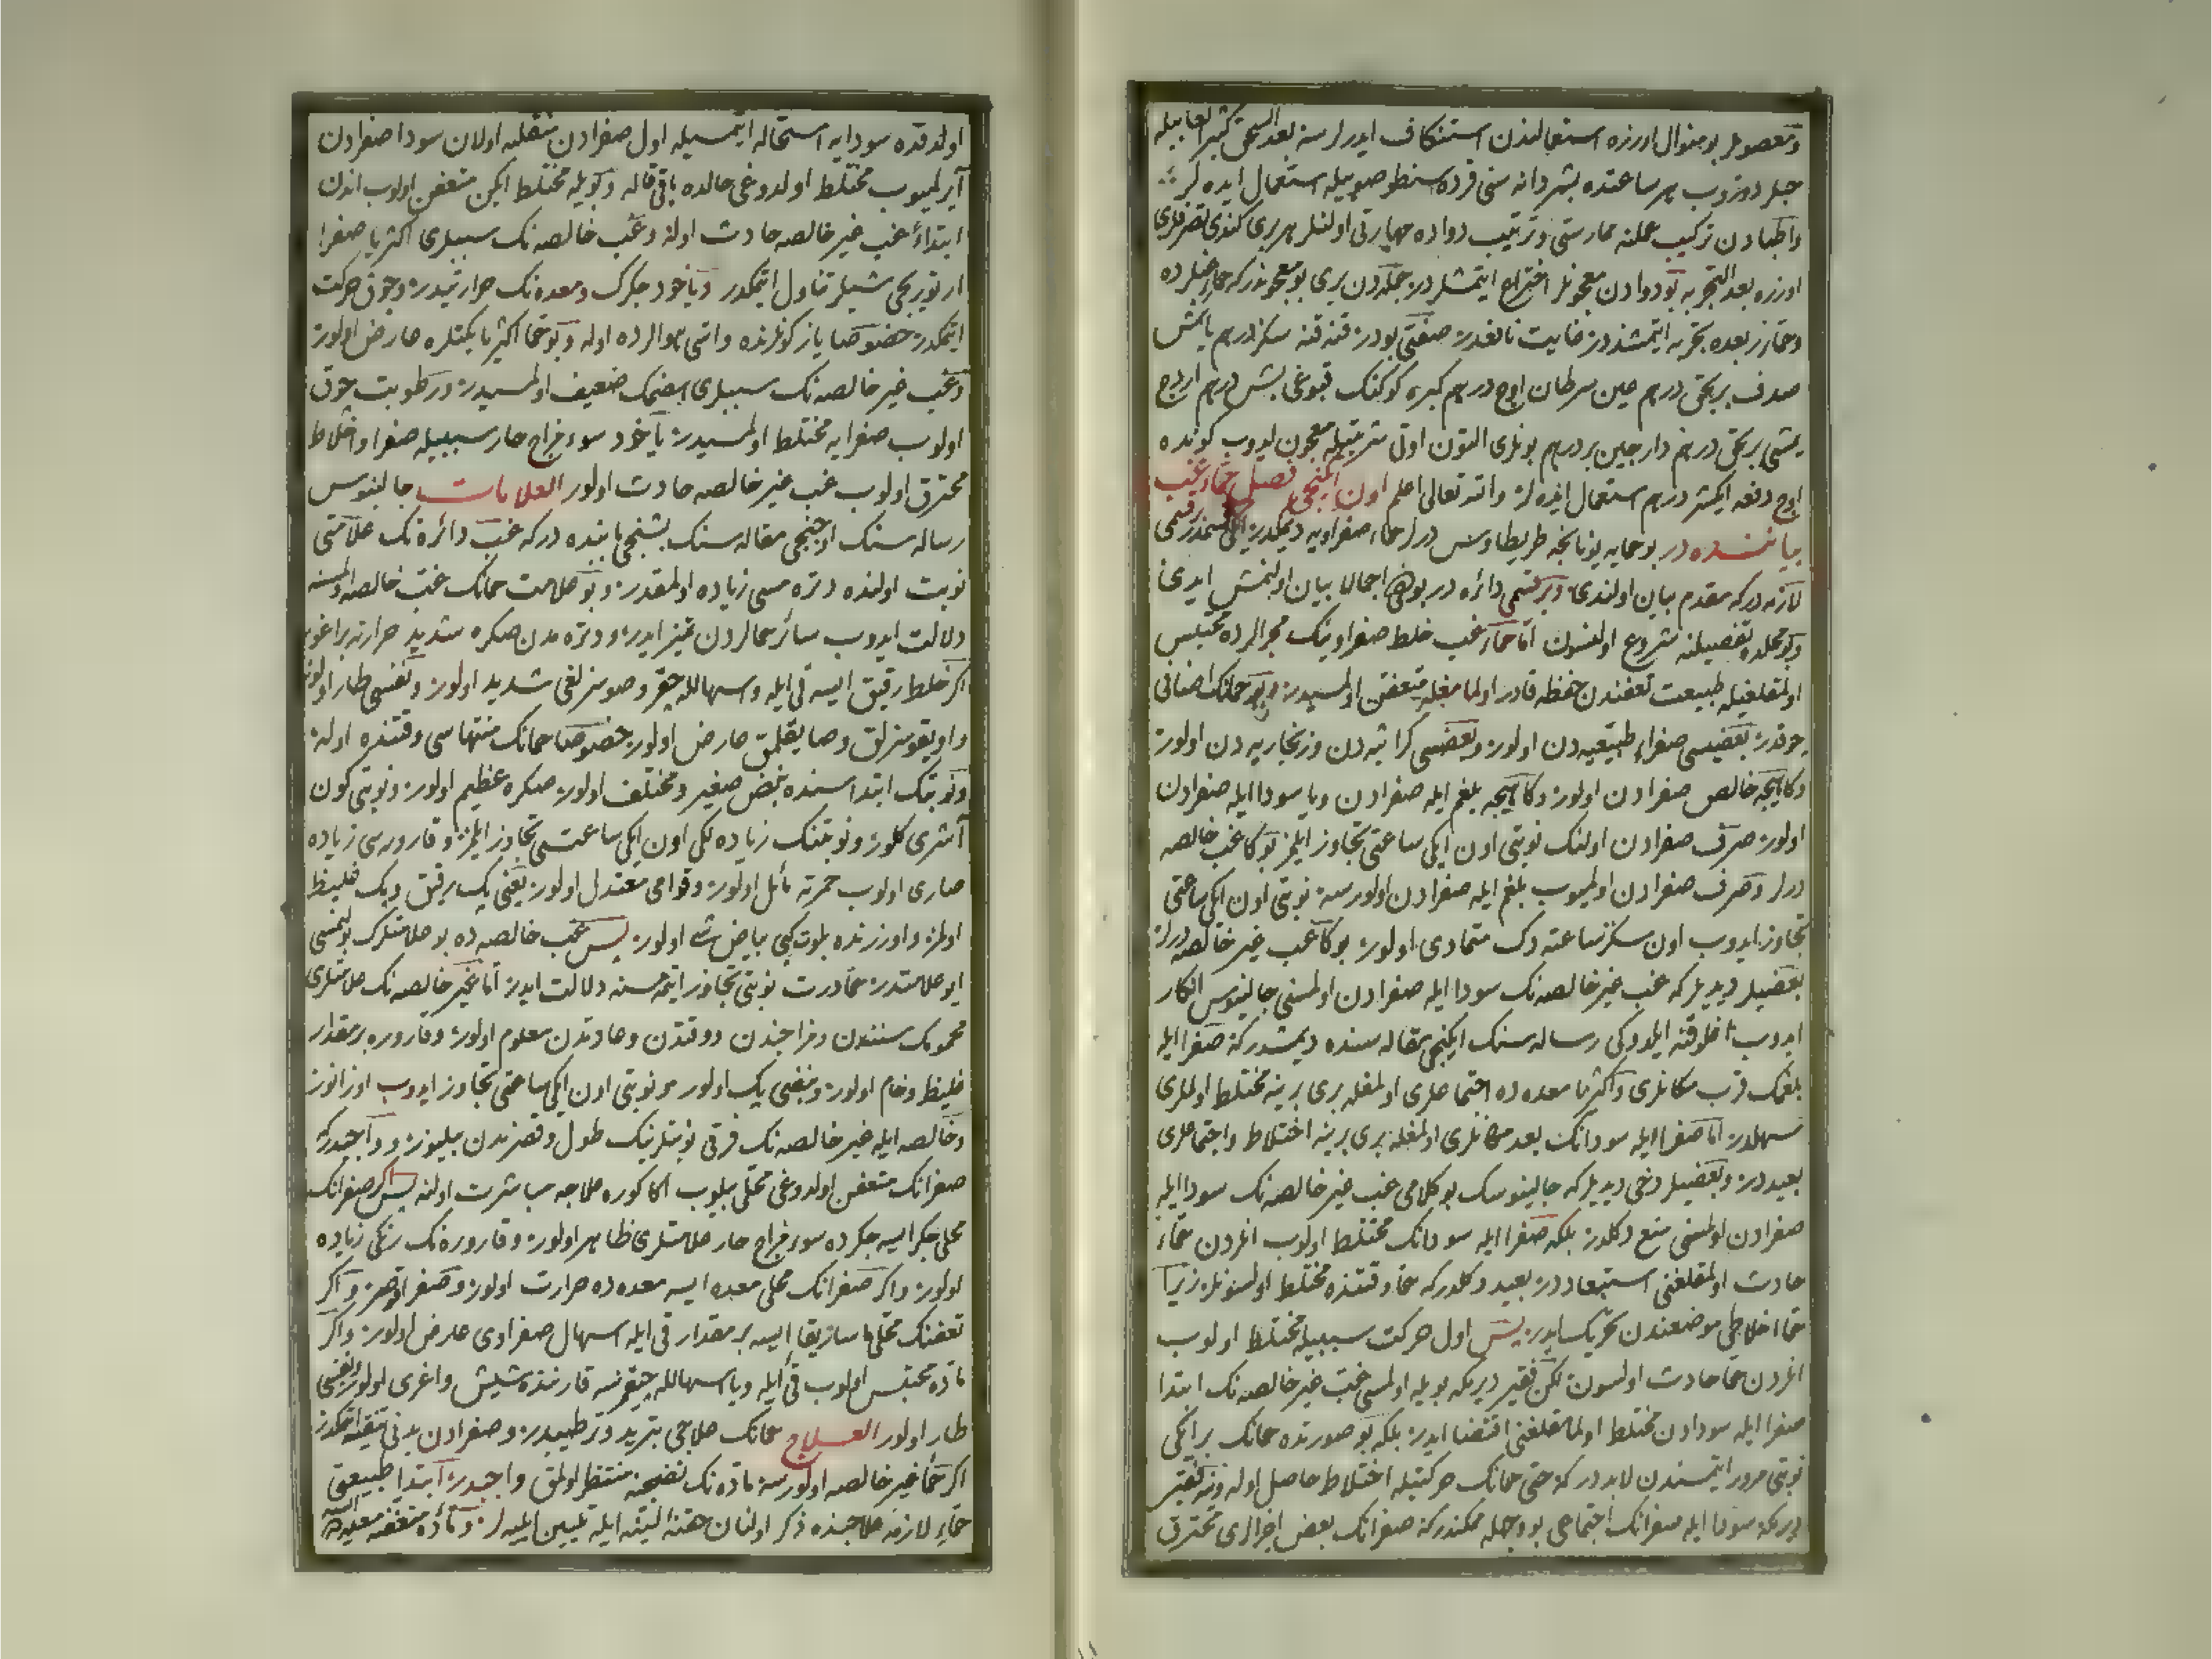 ومعصوملر بو منوال اوزره استعمالندن استنكاف ايدرلرسه بعد السحق كثيرا لعابيله
حبلر دوزوب هر ساعتده بشر دانه سنى قره سنطو صوييله استعمال ايده لر
واطبادن تركيب عملنه ممارستى وترتيب دواده مهارتى اولنلر هر برى كندى تصرفلرى
اوزره بعد التجربه بو دوادن معجونلر اختراع ايتمشلردر جمله دن برى بو معجوندر كه
وحمالرده تجربه ايتمشلردر غايت نافعدر صفتى بودر قنه قنه سكز درهم
صدف بر بحق درهم عين سرطان اوچ درهم كبره كوكنك قبوغى بشر درهم
يمشى بر بحق درهم دارچين بر درهم بونلرى التون اوتى شربتيله معجون ايدوب كونده
اوچ دفعه ايكيشر درهم استعمال ايده لر والله تعالى اعلم اون ايكنجى فصل حماء غب
بياننده در بو حمايه يونانجه طريطاوس درلر حماء صفراويه ديمكدر ايكى قسمدر بر قسمى
لازمه در كه مقدم بيان اولندى وبر قسمى دائره در بو دخى اجمالا بيان اولنمش ايدى
وبو محلده تفصيلنه شروع اولنسون اما حماء غب خلط صفراوينك مجرالرده محتبس
اولمقلغيله طبيعت تعفندن حفظه قادر اولمامغله متعفن اولمسيدر وبو حمانك اصنافى
چوقدر بعضيسى صفراء طبيعيه دن اولور وبعضيسى كراثيه دن وزنجاريه دن اولور
وكاهيجه خالص صفرادن اولور وكاهيجه بلغم ايله صفرادن ويا سودا ايله صفرادن
اولور صرف صفرادن اولنك نوبتى اون ايكى ساعتى تجاوز ايلمز بوكا غب خالصه
درلر وصرف صفرادن اولميوب بلغم ايله صفرادن اولورسه نوبتى اون ايكى ساعتى
تجاوز ايدوب اون سكز ساعته دك متمادى اولور بوكا غب غير خالصه درلر
بعضيلر ديديلر كه غب غير خالصه نك سودا ايله صفرادن اولمسنى جالينوس انكار
ايدوب اغلوقنه ايلدوكى رساله سنك ايكنجى مقاله سنده ديمشدر كه صفرا ايله
بلغمك قرب مكانلرى واكثريا معده ده اجتماعلرى اولمغله برى برينه مختلط اولملرى
سهلدر اما صفرا ايله سودانك بعد مكانلرى اولمغله برى برينه اختلاط واجتماعلرى
بعيددر وبعضيلر دخى ديديلر كه جالينوسك بو كلامى غب غير خالصه نك سودا ايله
صفرادن اولمسنى منع دكلدر بلكه صفرا ايله سودانك مختلط اولوب انلردن حماء
حادث اولمقلغنى استبعاددر بعيد دكلدر كه حما وقتنده مختلط اولسونلر زيرا
حما اخلاطى موضعندن تحريك ايدر پس اول حركت سببيله مختلط اولوب
انلردن حما حادث اولسون لكن فقير ديرمكه بويله اولمسى غب غير خالصه نك ابتدا
صفرا ايله سودادن مختلط اولمامقلغنى اقتضا ايدر بلكه بو صورتده حمانك بر ايكى
نوبتى مرور ايتمسندن لابددر كه حتى حمانك حركتيله اختلاط حاصل اوله وينه فقير
ديرمكه سودا ايله صفرانك اجتماعى بو وجهله ممكندر كه صفرانك بعض اجزالرى محترق
اولدقده سودايه استحاله ايتمسيله اول صفرادن منقلبه اولان سودا صفرادن
آيرلميوب مختلط اولدوغى حالده باقى قاله وبويله مختلط ايكن متعفن اولوب اندن
ابتداءً غب غير خالصه حادث اوله وغب خالصه نك سببلرى اكثريا صفرا
ارتوريجى شيلر تناول ايتمكدر وياخود جكرك ومعده نك حرارتيدر وچوق حركت
ايتمكدر خصوصا ياز كونلرنده واسى هوالرده اوله وبو حما اكثر يا يكتلره عارض اولور
وغب غير خالصه نك سببلرى هضمك ضعيف اولمسيدر ورطوبت چوق
اولوب صفرايه مختلط اولمسيدر ياخود سوء مزاج حار سببيله صفرا واخلاط
محترق اولوب غب غير خالصه حادث اولور العلامات جالينوس
رساله سنك اوچنجى مقاله سنك بشنجى بابنده دركه غب دائره نك علامتى
نوبت اولنده دتره مسى زياده اولمقدر وبو علامت حمانك غب خالصه اولمسنه
دلالت ايدوب سائر حمالردن تمييز ايدر ودتره مدن صكره شديد حرارته براغور
اكر خلط رقيق ايسه قى ايله واسهالله چقر وصوسزلغى شديد اولور ونفسى طار اولور
واويقوسزلق وصايقلمق عارض اولور خصوصا حمانك منتهاسى وقتنده اوله
ونوبتك ابتداسنده نبض صغير ومختلف اولور صكره عظيم اولور ونوبتى كون
آشرى كلور ونوبتنك زياده لكى اون ايكى ساعتى تجاوز ايلمز وقاروره سى زياده
صارى اولوب حمرته مائل اولور وقوامى معتدل اولور يعنى پك رقيق وپك غليظ
اولمز واوزرنده بلوت كبى بياض شى اولور پس غب خالصه ده بو علامتلرك بولنمسى
ايو علامتدر حمادرت نوبتى تجاوز ايتمه مسنه دلالت ايدر اما غير خالصه نك علامتلرى
محمومك سنندن ومزاجندن ووقتدن وعادتدن معلوم اولور وقاروره بر مقدار
غليظ وخام اولور ونبضى پك اولور ونوبتى اون ايكى ساعتى تجاوز ايدوب اوزانور
وخالصه ايله غير خالصه نك فرقى نوبتلرينك طول وقصرندن بيلنور وواجبدر كه
صفرانك متعفن اولدوغى محلى بيلوب اكا كوره علاجه مباشرت اولنه پس اكر صفرانك
محلى جكر ايسه جكرده سوء مزاج حار علامتلرى ظاهر اولور وقاروره نك رنكى زياده
اولور واكر صفرانك محلى معده ايسه معده ده حرارت اولور وصفرا قوصر واكر
تعفنك محلى ماساريقا ايسه بر مقدار قى ايله اسهال صفراوى عارض اولور واكر
ماده محتبس اولوب قى ايله ويا اسهالله چقمزسه قارننده شيش واغرى اولور ونفسى
طار اولور العلاج حمانك علاجى تبريد وترطيبدر وصفرادن بدنى تنقيه ايتمكدر
اكر حما غير خالصه اولورسه ماده نك نضجنه منتظر اولمق واجبدر ابتدا طبيعتى
حماء لازمه علاجنده ذكر اولنان حقنه لينه ايله تليين ايليه لر وماده متعفنه معده ده ايسه